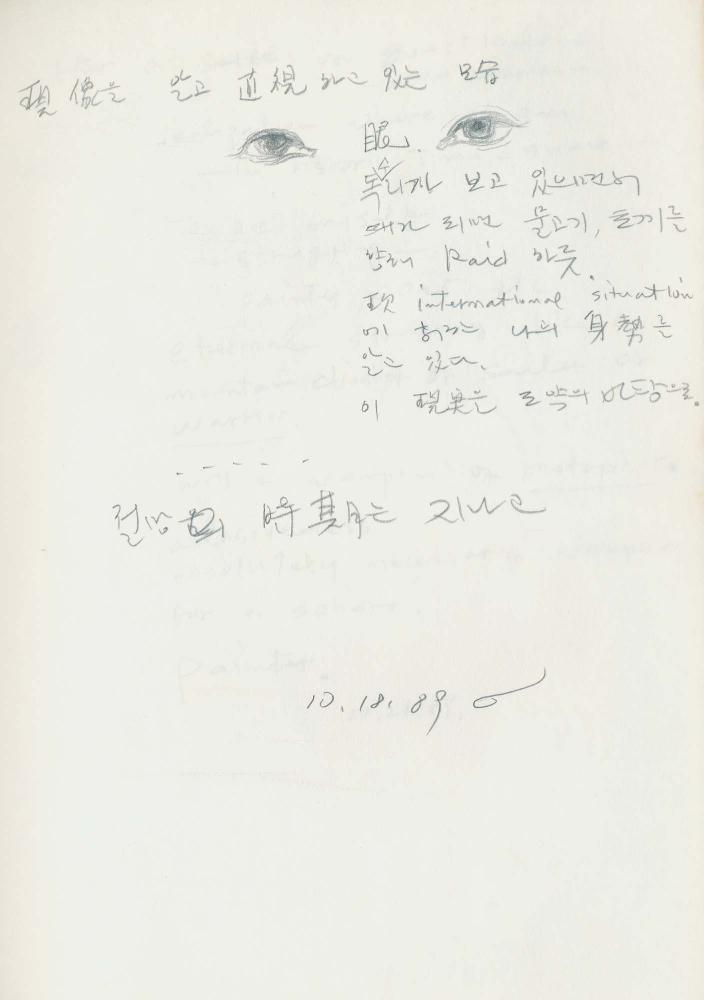 現像을 알고 直視하고 있는 모습
眼.
독수리가 보고 있으면서
때가 되면 물고기, 토끼를
향해 Raid 하듯.
現 international situation
에 처하는 나의 身勢를
알고 있다.
이 現実은 도약의 바탕으로.
- - - - -
절망의 時期는 지나고
10. 18. 89